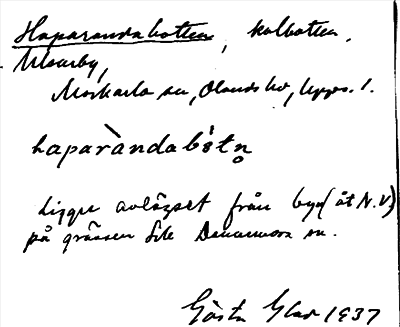 Haparandabotten, kolbotten,
Ulvarby,
Morkarla sn, Olands hd, Upps. l.
haparàndabòtn̥
Ligger avlägset från byn (åt N.V.)
på gränsen till Dannemora sn.
Gösta Glad 1937